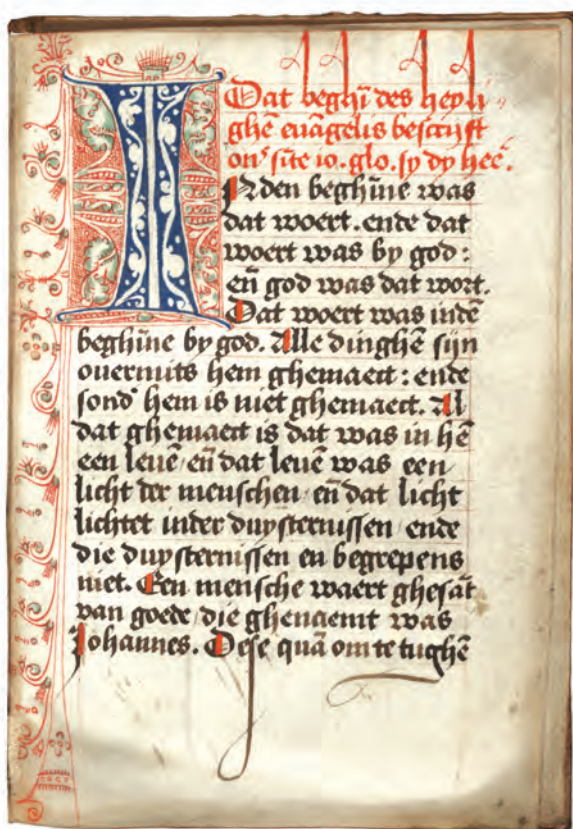 Dat beghī des heyli
ghē euāgelis bescrijft
onˢ sūte io. glo. sy dy hee.
IN den beghīne was
dat woert. ende dat
woert was by god:
eñ god was dat wort.
Dat woert was indē
beghīne by god. Alle dinghē sijn
ouermits hem ghemaect: ende
sondˢ hem is niet ghemaect. Al
dat ghemaect is dat was in hē
een leuē/ eñ dat leuē was een
licht der menschen/ eñ dat licht
lichtet inder duysternissen ende
die duysternissen en begrepens
niet. Een mensche waert ghesāt
van goede/ die ghenaemt was
Johannes. Dese quā om te tughē